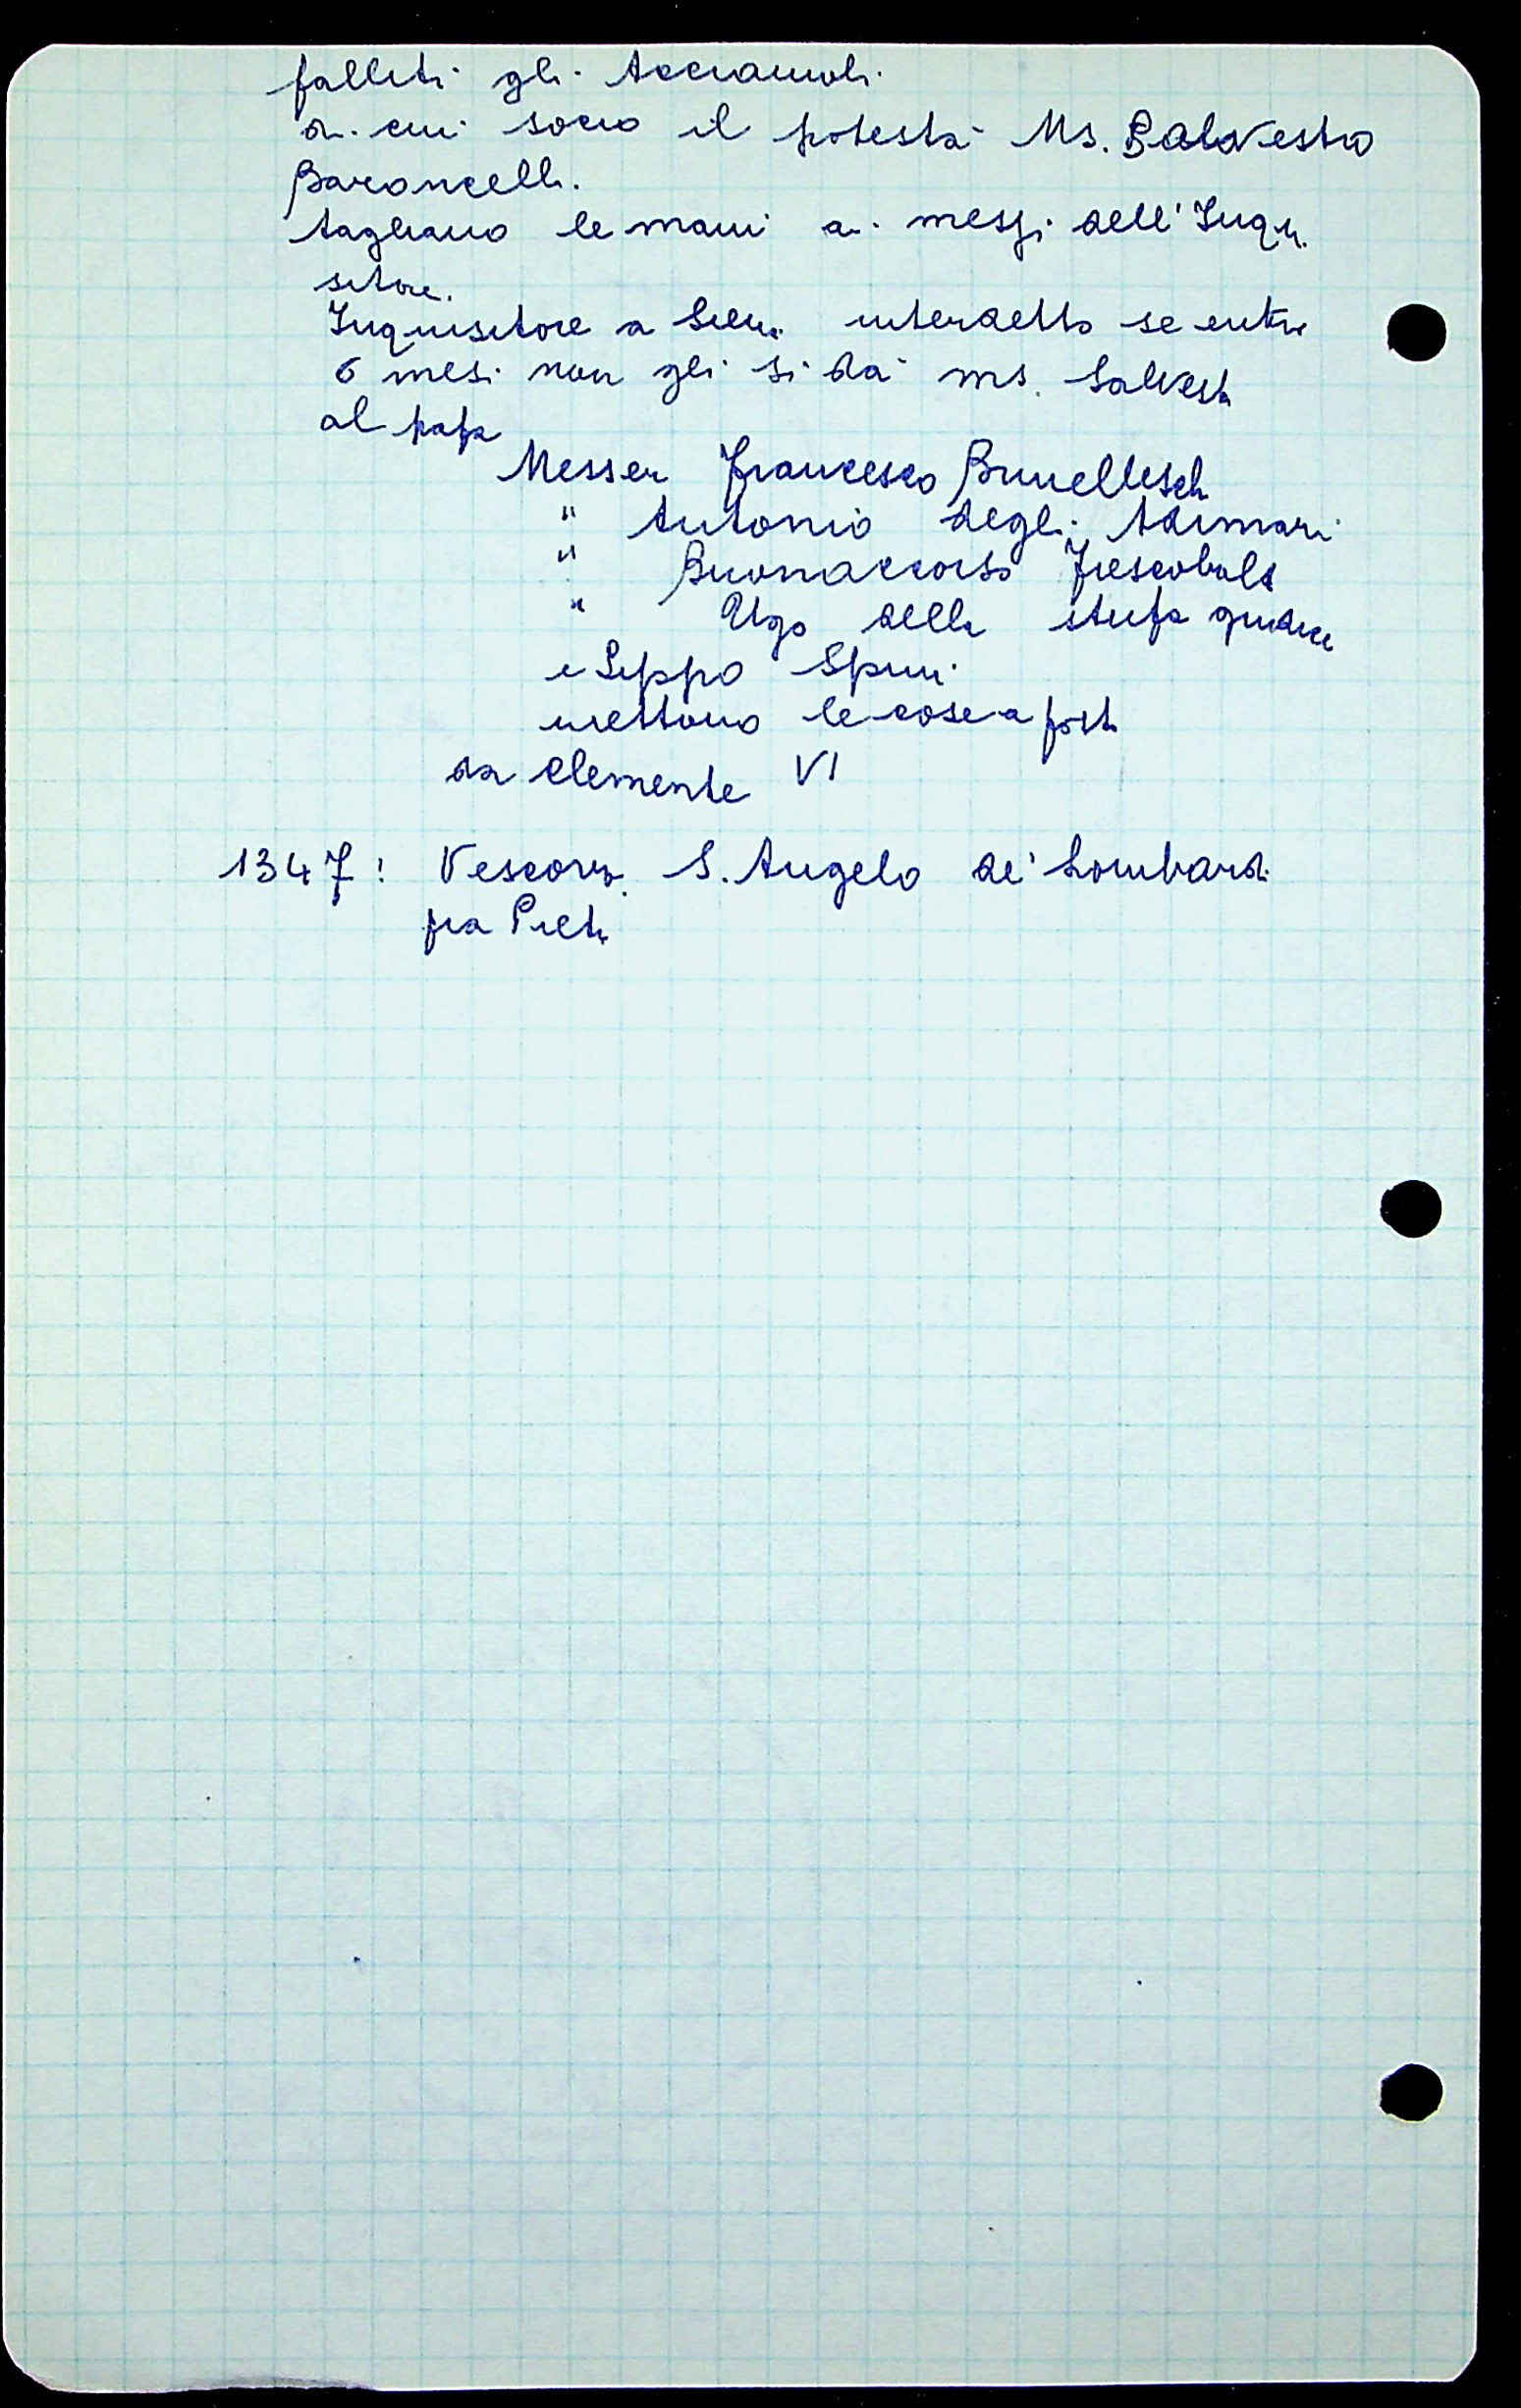 falliti gli Acciaiuoli
di cui socio il potestà Ms. Salvestro
Baroncelli.
tagliano le mani ai messi dell'Inqui
sitore.
Inquisitore a Siena interdetto se entro
6 mesi non gli si dà ms. Salvestro
al papa
Messer Francesco Brunelleschi
" Antonio degli Adimari
" Buonaccorso Frescobaldi
" Ugo della Stufa giudice
e Lippo Spini
mettono le cose a posto
da Clemente VI
1347: Vescovo S. Angelo de' Lombardi
fra Pietro